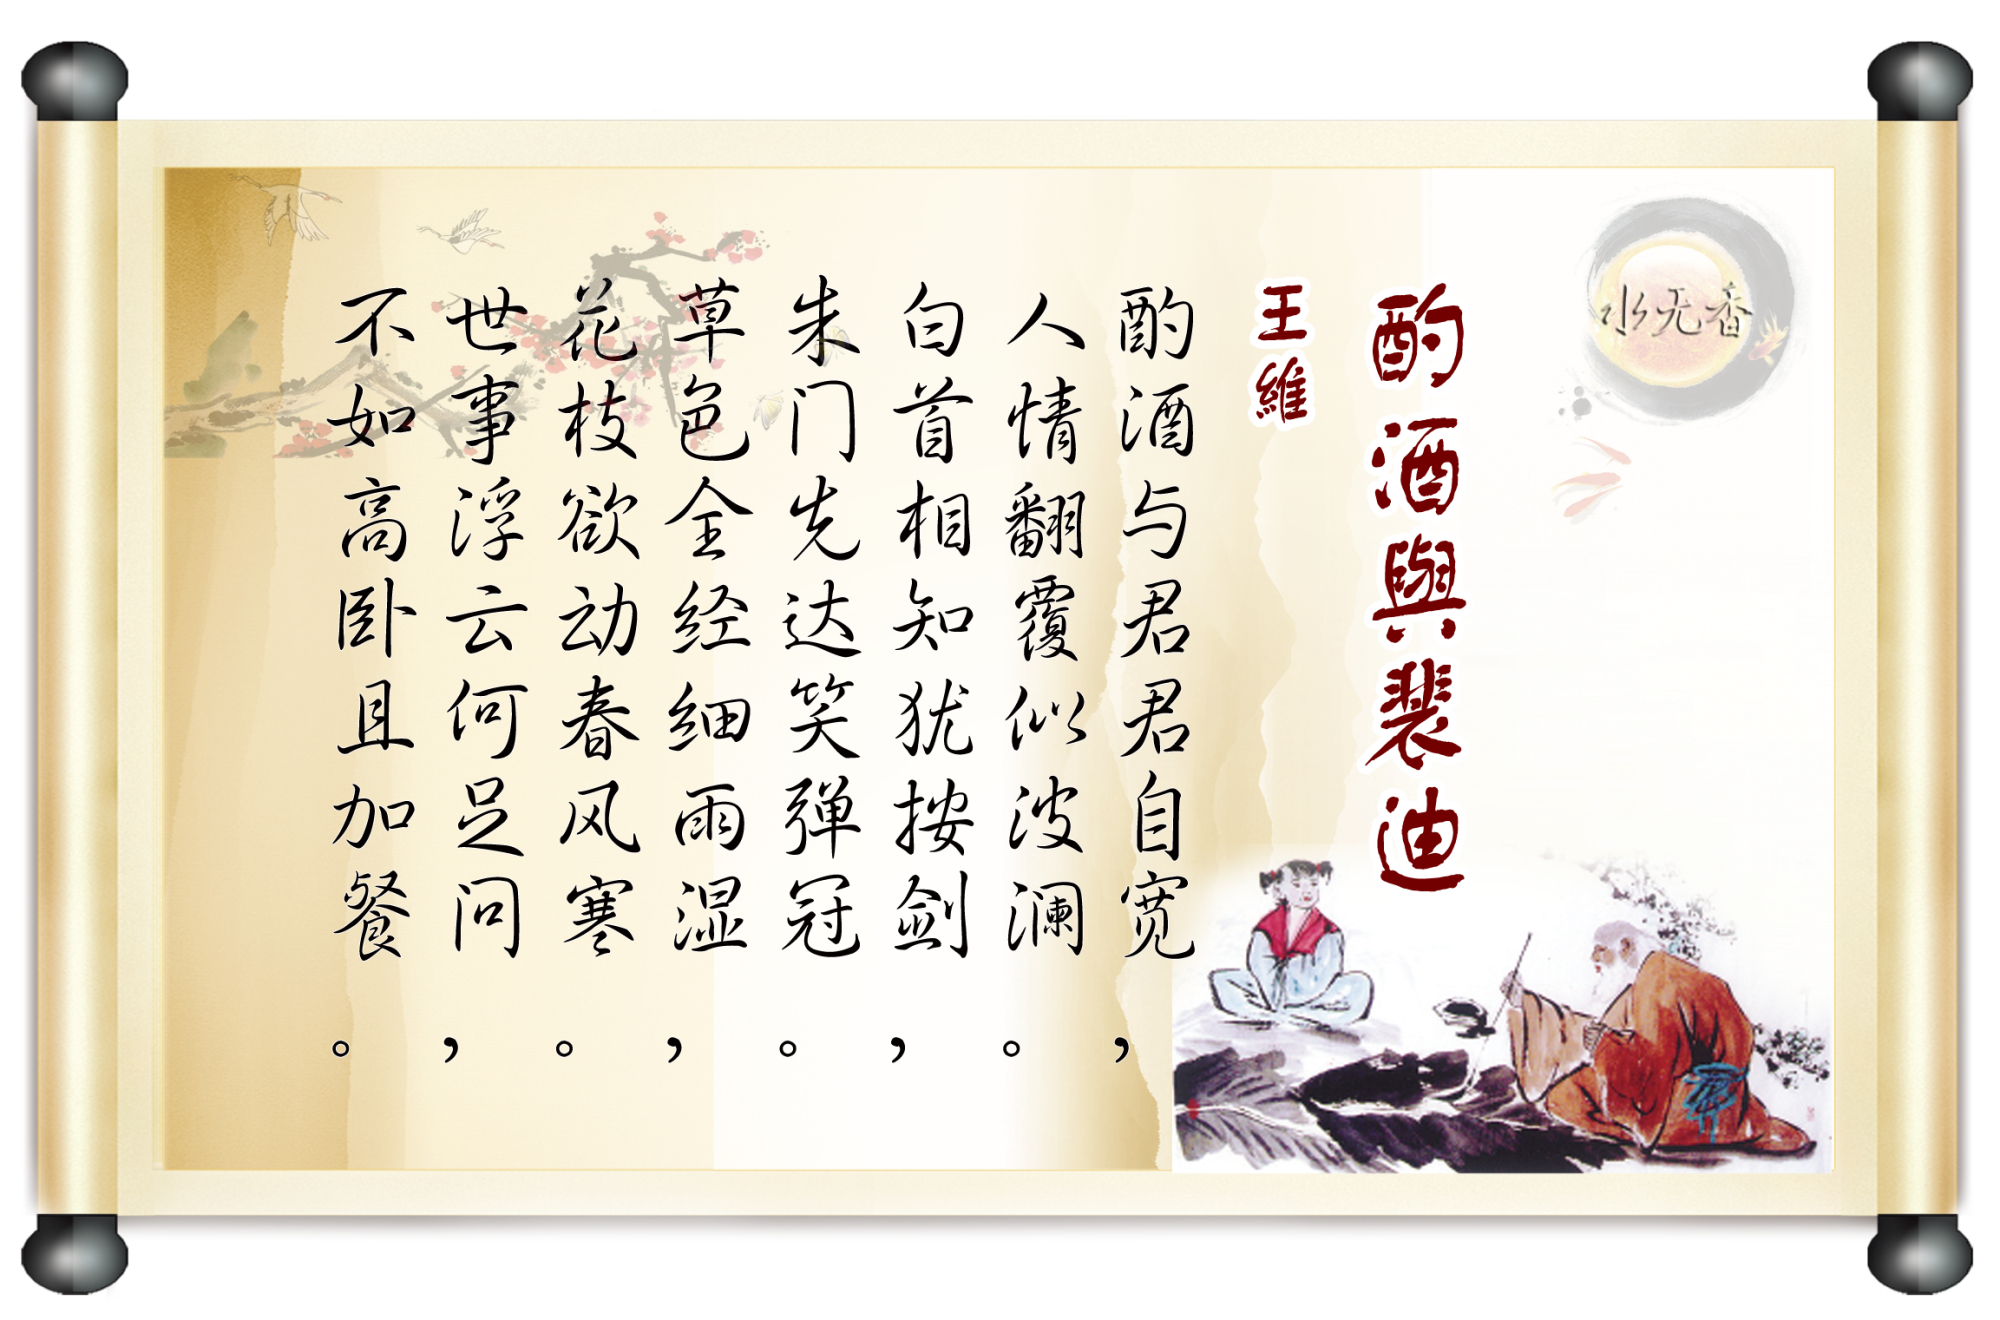 水无香
酌酒與裴迪
王維
酌酒与君君自宽，
人情翻覆似波澜。
白首相知犹按剑，
朱门先达笑弹冠。
草色全经细雨湿，
花枝欲动春风寒。
世事浮云何足问，
不如高卧且加餐。